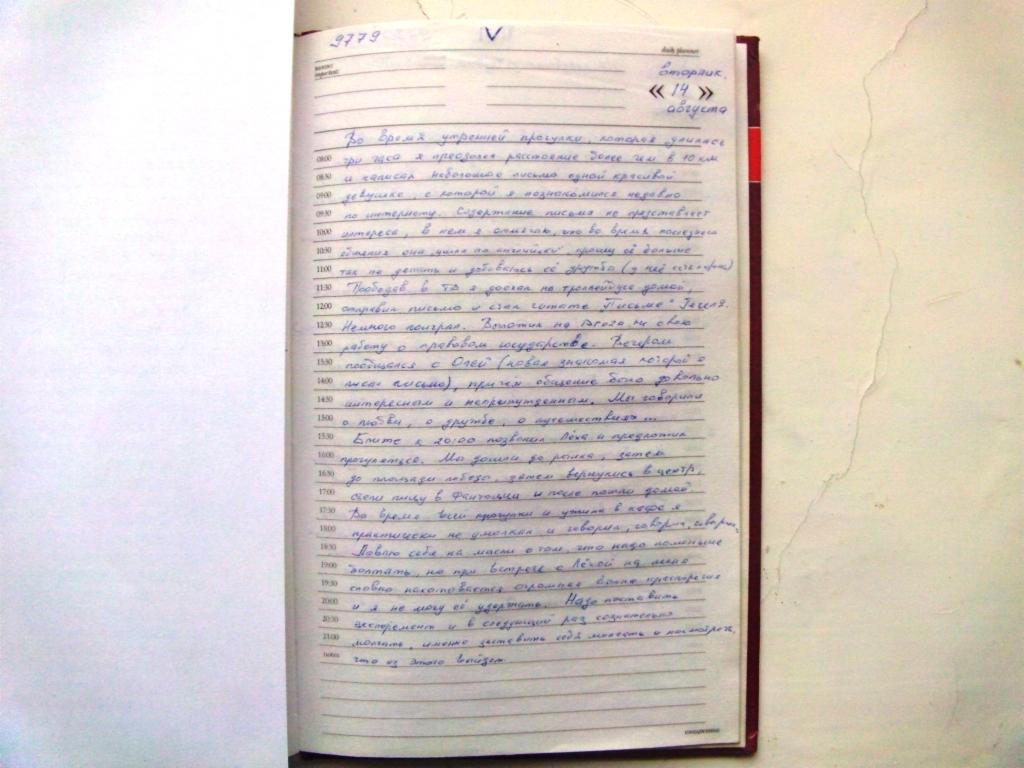 9779 V
daily planner
вторник.
« 14 »
августа
Во время утренней прогулки, которая длилась
08:00 три часа я преодолел расстояние более чем в 10 км
08:30 и написал небольшое письмо одной красивой
09:00 девушке, с которой я познакомился недавно
09:30 по интернету. Содержание письма не представляет
10:00 интереса, в нем я отмечаю, что во время последнего
10:30 общения она „ушла по-английски", прошу её больше
11:00 так не делать и добиваюсь её дружбы (у неё
11:30 Пообедав в ТЦ я доехал на троллейбусе домой,
12:00 отправил письмо и стал читать „Письма" Гегеля.
12:30 Немного поиграл. Выложил на свою
13:00 работу о правовом государстве. Вечером
13:30 пообщался с Олей (новая знакомая которой я
14:00 писал письмо), причем общение было довольно
14:30 интересным и непринужденным. Мы говорили
15:00 о любви, о дружбе, о путешествиях...
15:30 Ближе к 20:00 позвонил Лёха и предложил
16:00 прогуляться. Мы дошли до рынка, затем
16:30 до площади победы, затем вернулись в центр,
17:00 съели пиццу в и после пошли домой.
17:30 Во время всей прогулки и ужина в кафе я
18:00 практически не умолкал и говорил, говорил, говорил.
18:30 Ловлю себя на мысли о том, что надо поменьше
19:00 болтать, но при встрече с Лёхой на меня
19:30 словно накатывается огромная волна
20:00 и я не могу её удержать. Надо поставить
20:30 эксперемент и в следующий раз сознательно
21:00 молчать, именно заставить себя молчать и посмотреть,
notes что из этого выйдет.
ежедневник